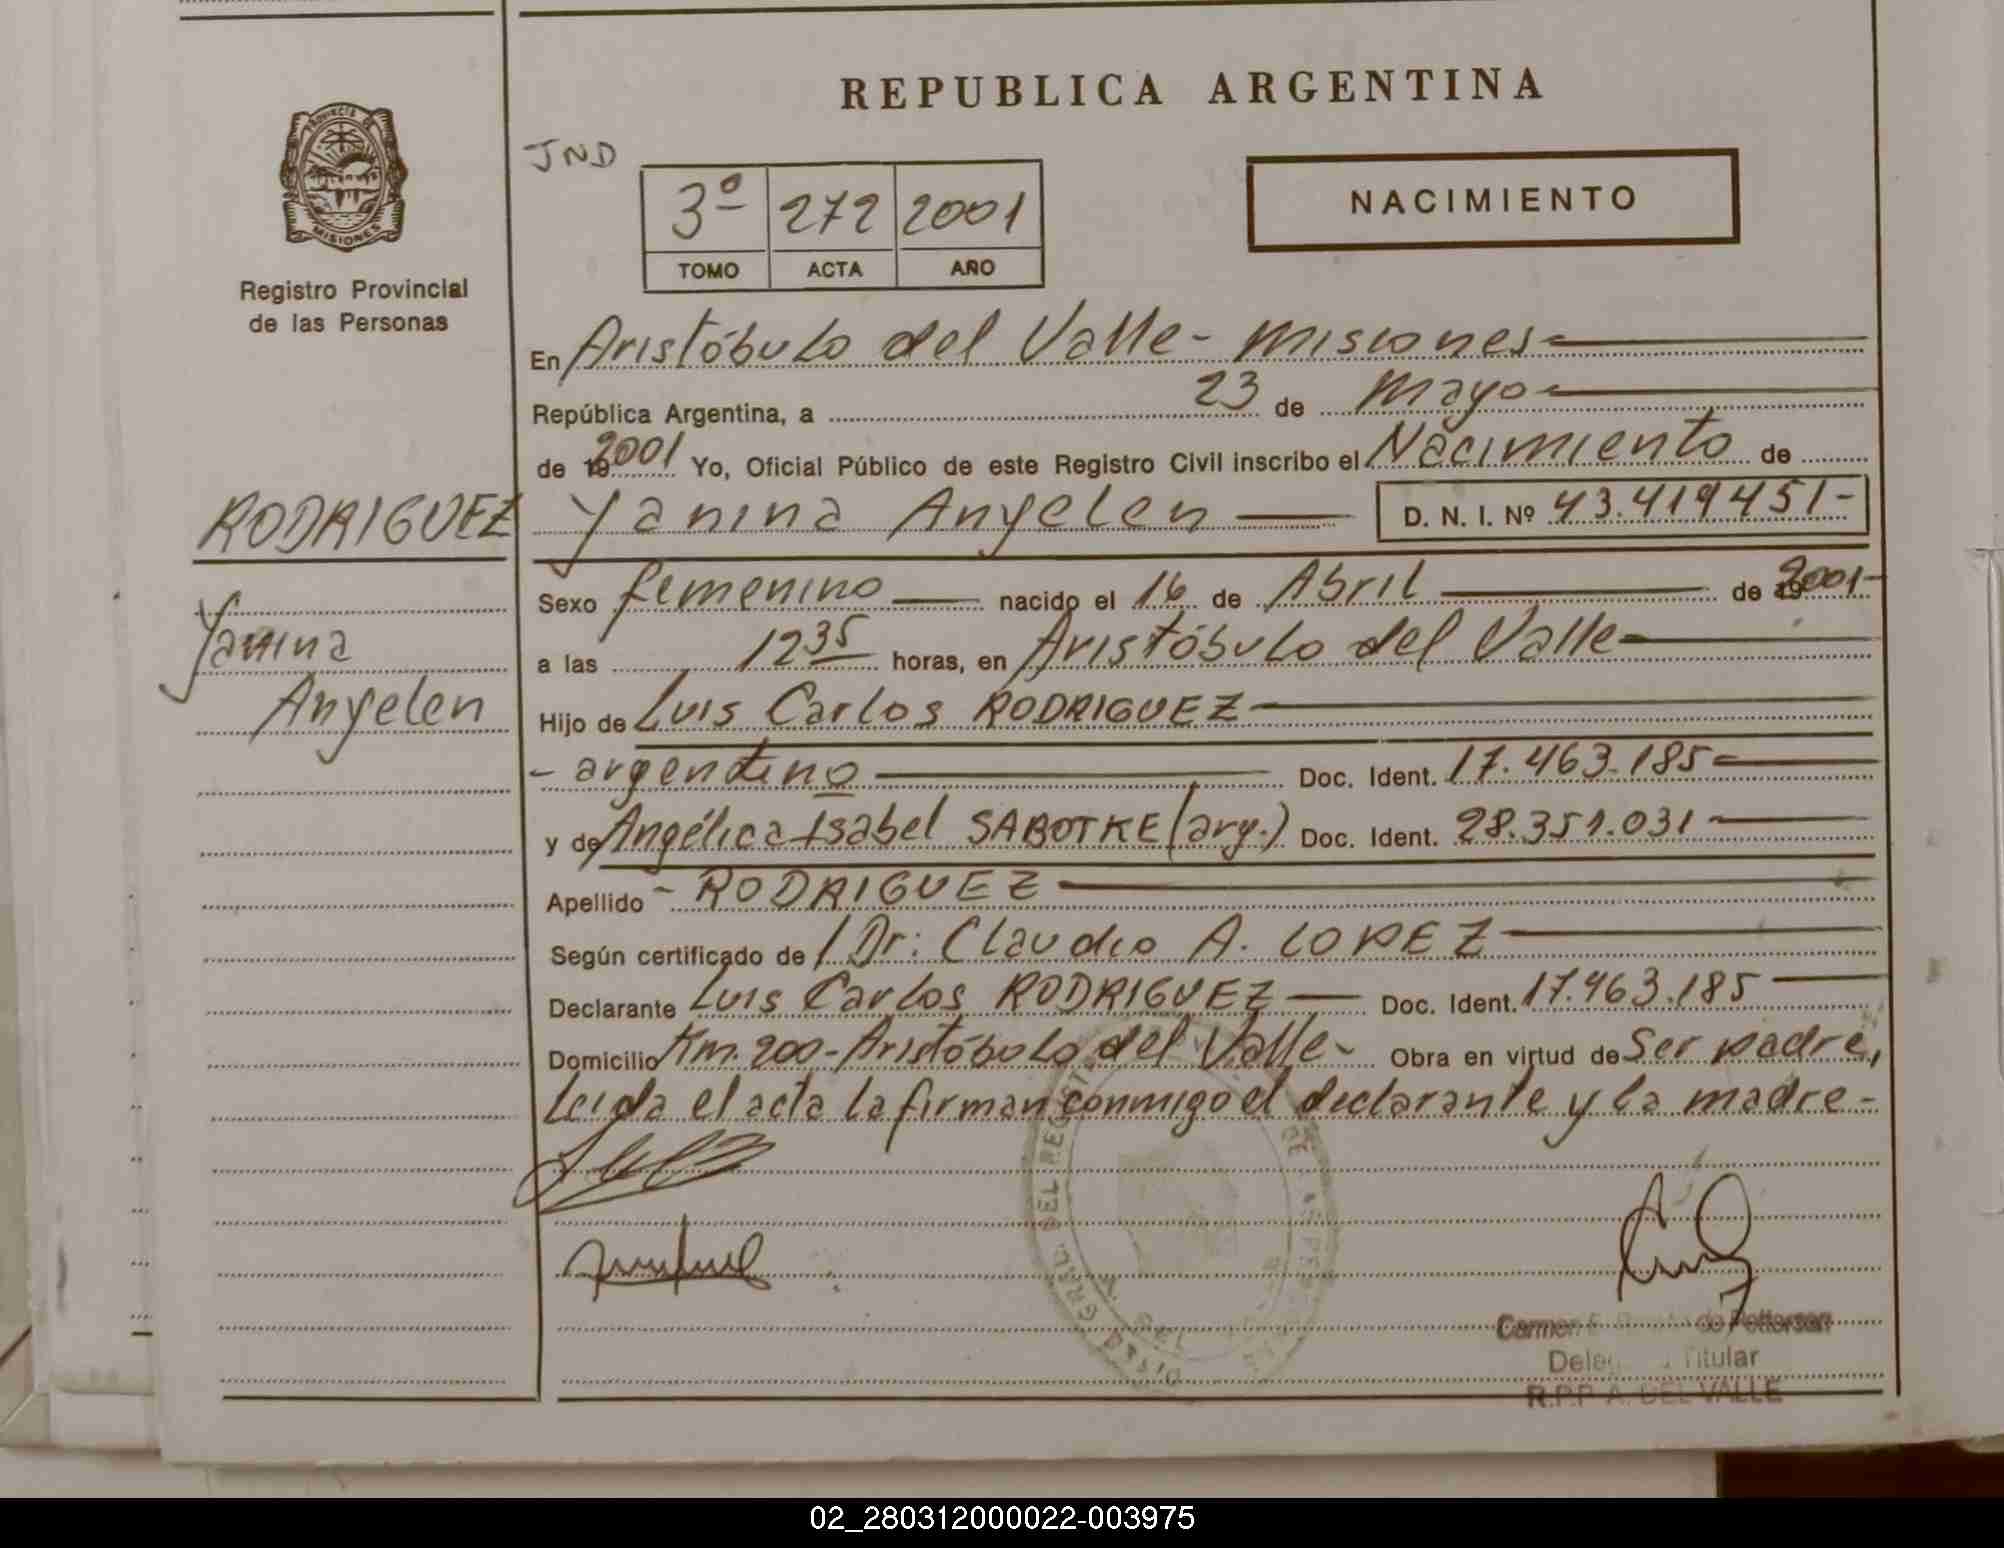 REPUBLICA ARGENTINA
PROVINCIA DE MISIONES
Registro Provincial
de las Personas
JND
3º 272 2001
TOMO ACTA AÑO
NACIMIENTO
En Aristóbulo del Valle - Misiones
República Argentina, a 23 de Mayo
de 19 2001 Yo, Oficial Público de este Registro Civil inscribo el Nacimiento de
RODRIGUEZ Yanina Anyelen D. N. I. Nº 43.419451-
Yanina
Anyelen
Sexo femenino nacido el 16 de Abril de 19 2001-
a las 12 35 horas, en Aristóbulo del Valle
Hijo de Luis Carlos RODRIGUEZ
- argentino Doc. Ident. 17.463.185
y de Angélica Isabel SABOTKE (arg.) Doc. Ident. 28.351.031
Apellido - RODRIGUEZ
Según certificado de Dr: Claudio A. LOPEZ
Declarante Luis Carlos RODRIGUEZ Doc. Ident. 17.463.185
Domicilio Km. 200 - Aristóbulo del Valle - Obra en virtud de Ser padre,
Leída el acta la firman conmigo el declarante y la madre-
Carmen de Pettersen
Titular
R.P.P A. DEL VALLE
02_280312000022-003975